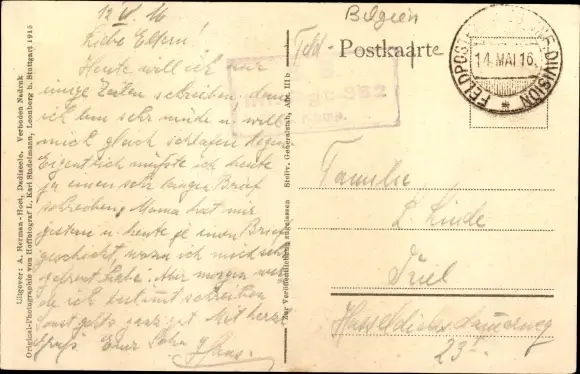 12. V. 16
Liebe Eltern!
Heute will ich nur
einige Zeilen schreiben, denn
ich bin sehr müde u. will
mich gleich schlafen legen.
Eigentlich müsste ich heute
ja einen sehr langen Brief
schreiben, Mama hat mir
gestern u. heute je einen Brief
geschickt, wozu ich mich sehr
gefreut habe. Aber morgen wer-
de ich bestimmt schreiben
sonst geht's ganz gut. Mit herzl.
Gruß Euer Sohn Hans.
Belgien
Feld-Postkaarte
FELDPOST DIVISION
14 MAI 16.
Familie
L. Linde
Kiel
Hasseldieksdammerweg
23
Uitgever: A. Herman-Hoet, Dadizeele. Verboden Nadruk
Original-Photographie von Hoffotograf L. Karl Stadelmann, Leonberg b. Stuttgart 1915
Zur Veröffentlichung zugelassen Stellv. Generalstab, Abt. IIIb